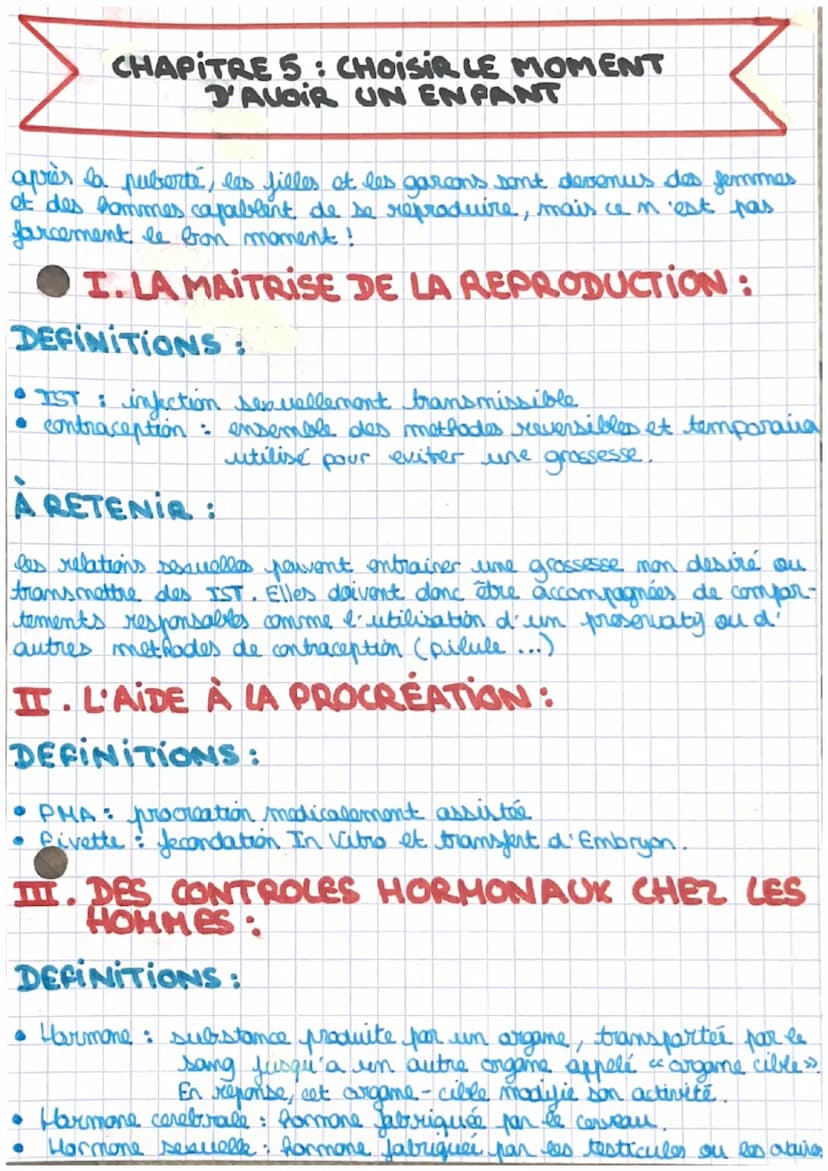 CHAPITRE 5 : CHOISIR LE MOMENT
D'AVOIR UN ENFANT
après la puberté, les filles et les garcons sont devenus des femmes
et des hommes capablent de se reproduire, mais ce n'est pas
forcement le bon moment !
I. LA MAITRISE DE LA REPRODUCTION :
DEFINITIONS :
• IST : infection sexuellement transmissible
• contraception : ensemble des methodes reversibles et temporaires
utilisé pour eviter une grossesse.
À RETENIR :
les relations sexuelles peuvent entrainer une grossesse non desiré ou
transmettre des IST. Elles doivent donc être accompagnées de compor-
tements responsables comme l'utilisation d'un preservatif ou d'
autres methodes de contraception (pilule ...)
II. L'AIDE À LA PROCRÉATION :
DEFINITIONS :
• PMA : procreation medicalement assistée
• Fivette : fecondation In Vitro et transfert d'Embryon.
III. DES CONTROLES HORMONAUX CHEZ LES
HOMMES :
DEFINITIONS :
• Hormone : substance produite par un organe, transporteé par le
sang jusqu'a un autre organe appelé « organe cible».
En reponse, cet organe-cible modifie son activité.
• Hormone cerebrale : hormone fabriquée par le cerveau.
• Hormone sexuelle : hormone fabriqueé par les testicules ou les ovaires